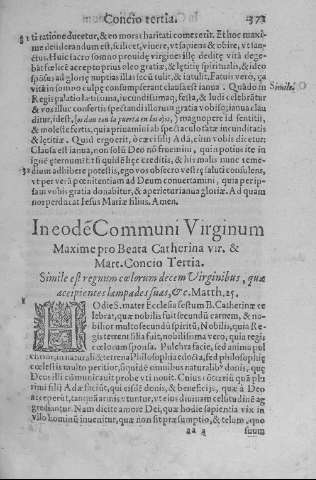 Concio tertia. 373
ti ratione ducetur, & eo mors haritati cometerit. Et hoc maxi-
me desiderandum est, scilicet, viuere, vt sapiens & obire, vt san-
ctus. Huic sacro somno prouidę virgines illę deditę vita dege-
bāt fœlices accepto prius oleo gratiæ, & lętitię spiritualis, & ideo
spōsus ad glorię nuptias illas secū tulit, & intulit. Fatuis vero, ꝗa
vitā in somno culpę consumpserant clausa est ianua. Quādo in
Regis palatio lætissima, iucundissimaq; festa, & ludi celebrātur
& vos illuc consertis spectandi illorum gratia vobisq; ianua clau
ditur,
Simile.
magnopere id sentitis,
& moleste fertis, quia priuamini ab spectaculo tātæ iucunditatis
& lętitiæ. Quid ergo erit, ô cæci filij Adā, cum vobis dicetur:
Clausa est ianua, non solū Deo nō fruemini, quin potius ite in
ignē æternum? Et si quidē hęc creditis, & his malis nunc reme-
dium adhibere potestis, ego vos obsecro vestrę saluti consulens,
vt per verā pœnitentiam ad Deum conuertamini, qua per ip-
sam vobis gratia donabitur, & aperietur ianua gloriæ. Ad quam
nos perducat Iesus Mariæ filius. Amen.
In eodē Communi Virginum
Maxime pro Beata Catherina vir. &
Mart. Concio Tertia.
Simile est regnum cœlorum decem Virginibus, quæ
accipientes lampades suas, &c. Matth. 25.
HODie S. mater Ecclesia festum B. Catherinæ ce
lebrat, quæ nobilis fuit secundū carnem, & no-
bilior multo secundū spiritū. Nobilis, quia Re-
gis terreni filia fuit, nobilissima vero, quia regis
cœlorum sponsa. Pulchra facie, sed anima pul
chrior, in naturali, & terrena Philosophia edocta, sed philosophię
cœlestis multo peritior, siquidē omnibus naturalib9 donis, quę
Deus illi cōmunicauit probe vti nouit. Cuius cōtrariū quā plu
rimi filij Adæ faciūt, qui eisdē donis, & beneficijs, quæ à Deo
acceperūt, tanquā armis vtuntur, vt eius diuinam celsitudinē ag
grediantur. Nam dicite amore Dei, quæ hodie sapientia vix in
vllo hominū inuenitur, quæ nō sit præsumptio, & telum, quo
aa 3 suum